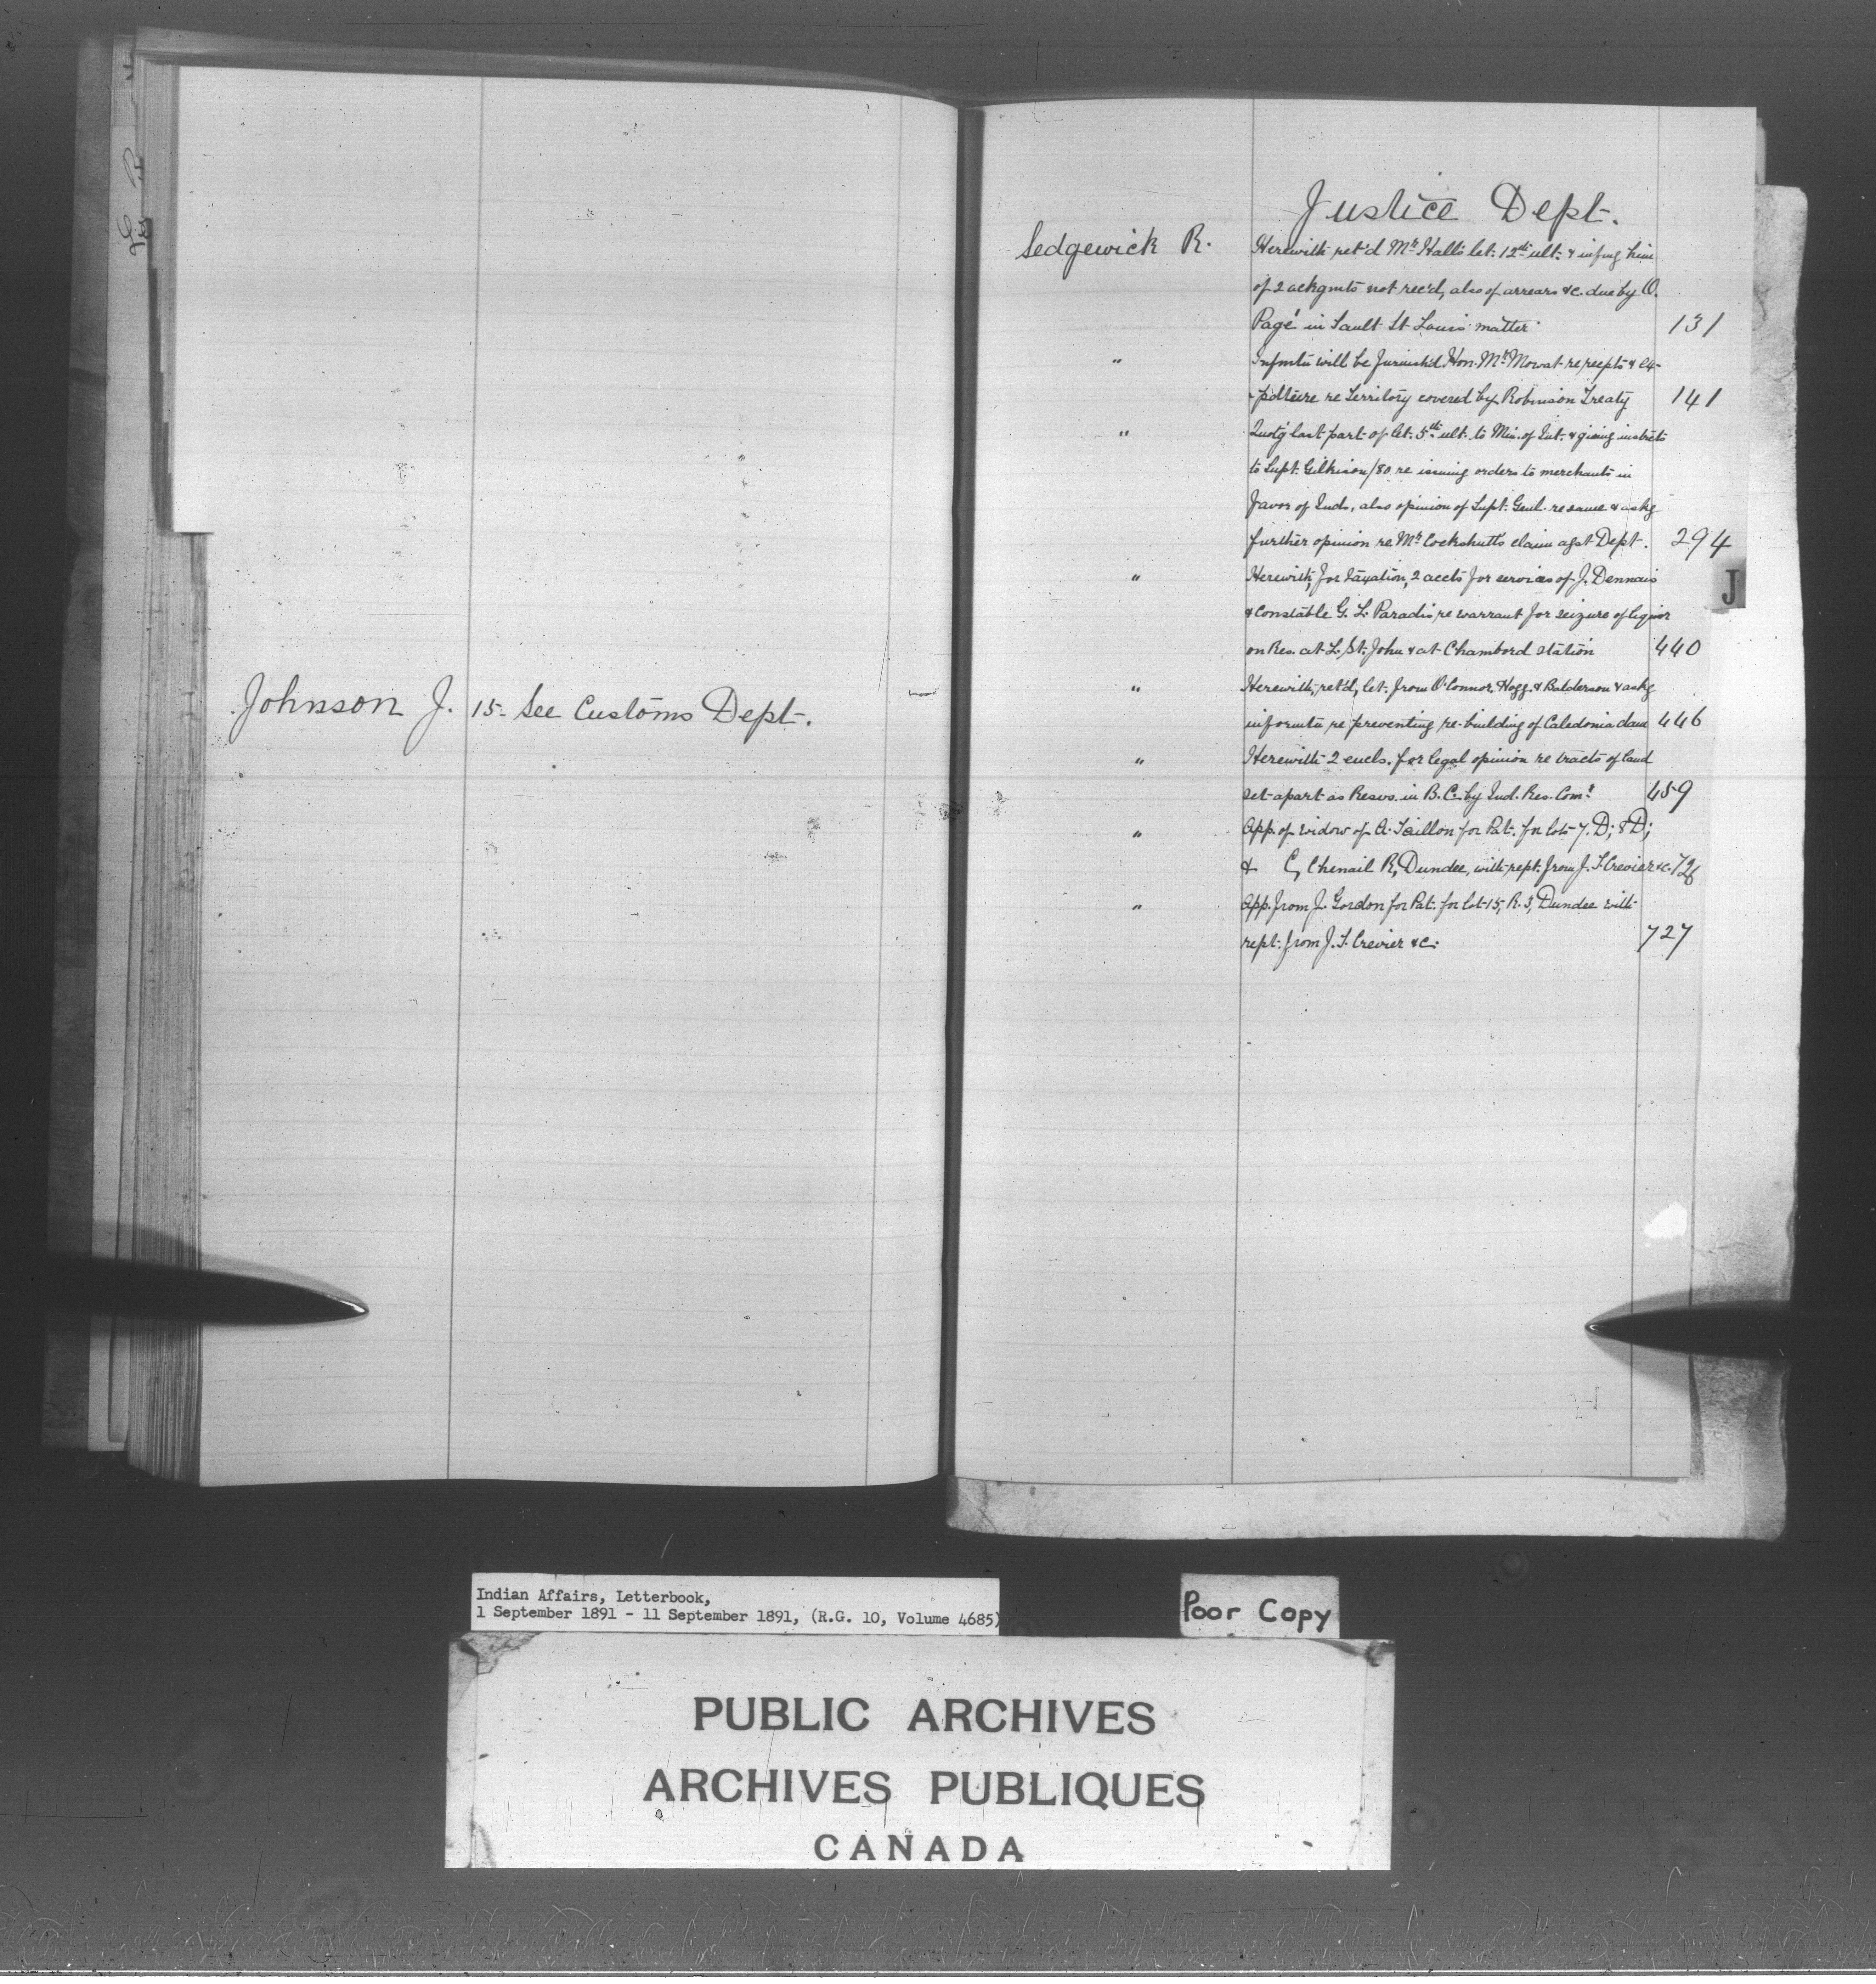 Johnson J. 15- See Customs Dept.
Justice Dept.
Sedgewick R. Herewith ret'd Mr Hall's let. 12th ult. & infmg him
of 2 ackgmts not rec'd, also of arrears &c. due by O.
Pagé in Sault St Louis matter 131
" Infmtn will be furnish'd Hon. Mr Mowat re recpts & ex-
-pdture re territory covered by Robinson Treaty 141
" Quot'g last part of let. 5th ult. to Min. of Int. & giving instrcts
to Supt. Gilkison /80 re issuing orders to merchants in
favor of Inds, also opinion of Supt. Genl. re same & askg
further opinion re Mr Cockshutt's claim agst Dept. 294
" Herewith, for taxation, 2 accts for services of J. Dennais
& Constable G. L. Paradis re warrant for seizure of liquor
on Res. at L. St. John & at Chambord station 440
" Herewith, ret'd, let. from O'Connor, Hogg & Balderson & askg
informtn re preventing re-building of Caledonia dam 446
" Herewith 2 encls. for legal opinion re tracts of land
set apart as Resvs. in B.C. by Ind. Res. Comr 459
" App. of widow of A. Taillon for Pat. for lots 7. D; 8 D;
& C, Chenail R, Dundee, with rept. from J. T. Crevier &c. 726
" App. from J. Gordon for Pat. for lot 15, R. 3, Dundee with
rept. from J. T. Crevier &c. 727
J
Indian Affairs, Letterbook,
1 September 1891 - 11 September 1891, (R.G. 10, Volume 4685)
Poor Copy
PUBLIC ARCHIVES
ARCHIVES PUBLIQUES
CANADA